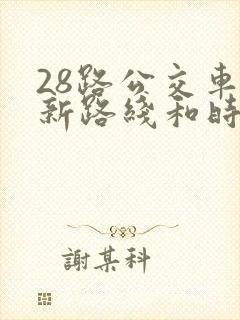 28路公交車
新路綫和時
謝某科